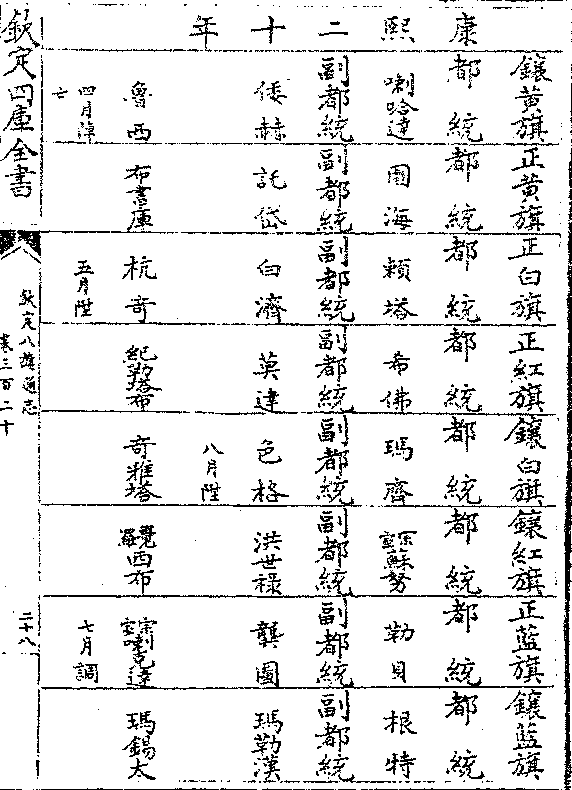 康熙二十年
鑲黃旗 正黃旗 正白旗 正紅旗 鑲白旗 鑲紅旗 正藍旗 鑲藍旗
都統 都統 都統 都統 都統 都統 都統 都統
喇哈達 圖海 賴塔 希佛 瑪齊 宗室蘇努 勒貝 根特
副都統 副都統 副都統 副都統 副都統 副都統 副都統 副都統
倭赫 託岱 白濟 英達 色格 洪世祿 龔圖 瑪勒漢
八月陞
魯西 布書庫 杭奇 紀勒塔布 奇雅塔 覺羅西布 宗室喇克達 瑪錫太
四月 五月陞 七月調
欽定四庫全書
欽定八旗通志
卷三百二十
二十八